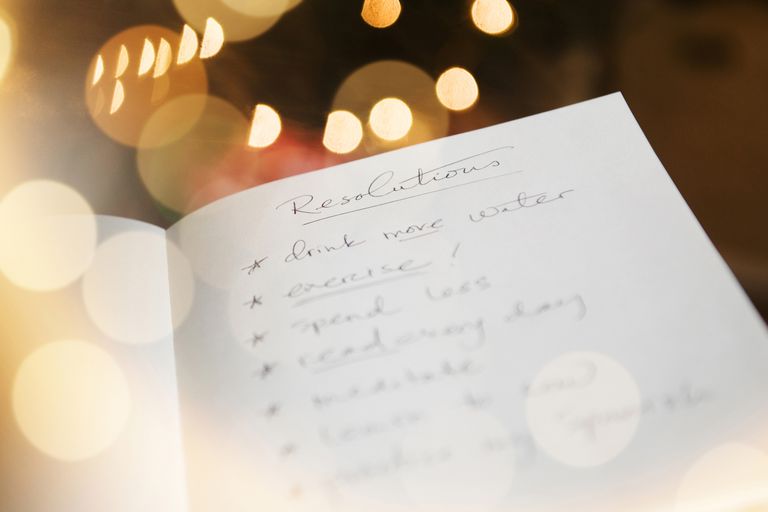 Resolutions
* drink more water
* exercise!
* spend less
* read every day
* meditate
* learn to
*